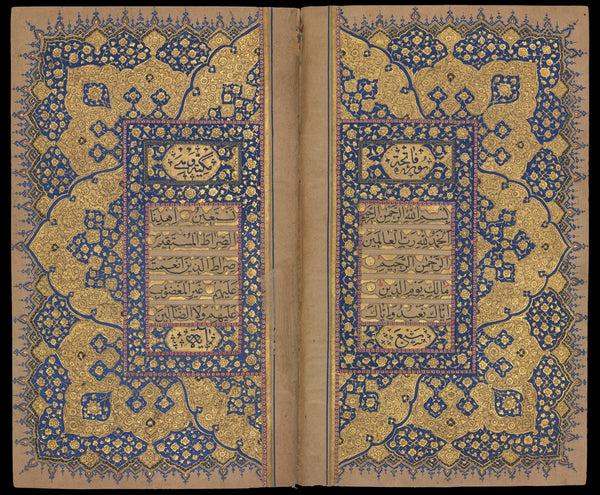 سورة فاتحة
بسم الله الرحمن الرحيم
الحمد لله رب العالمين
الرحمن الرحيم
مالك يوم الدين
إياك نعبد وإياك
سبع
نستعين اهدنا
الصراط المستقيم
صراط الذين انعمت
عليهم غير المغضوب
عليهم ولا الضالين